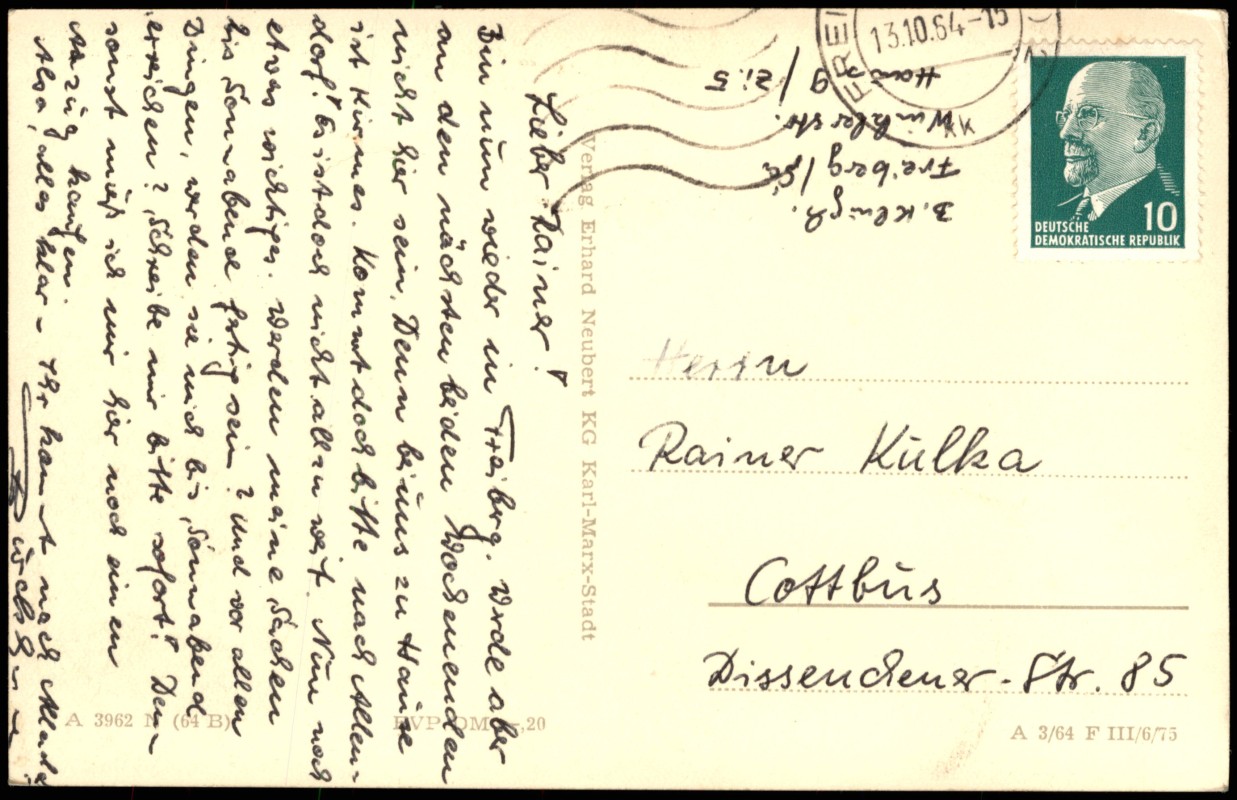 Lieber Rainer!
Bin nun wieder in Freiberg. Werde aber
an den nächsten beiden Wochenenden
nicht hier sein. Denn bei uns zu Hause
ist Kirmes. Kommt doch bitte nach Allen-
dorf! Es ist doch nicht allzu weit. Nun noch
etwas wichtiges. Werden meine Sachen
bis Sonnabend fertig sein? Und vor allen
Dingen, werden sie mich bis Sonnabend
erreichen? Schreibe mir bitte sofort! Denn
sonst muß ich mir hier noch einen
Anzug kaufen.
Also, alles klar – Ihr kommt nach
Verlag Erhard Neubert KG Karl-Marx-Stadt
A 3962 N (64 B)
EVP DM -,20
B.
Freiberg/Sa.
Winklerstr.
Haus 9 / Zi. 5
FREI
13.10.64-15
DEUTSCHE
DEMOKRATISCHE REPUBLIK
10
Herrn
Rainer Kulka
Cottbus
Dissenchener-Str. 85
A 3/64 F III/6/75